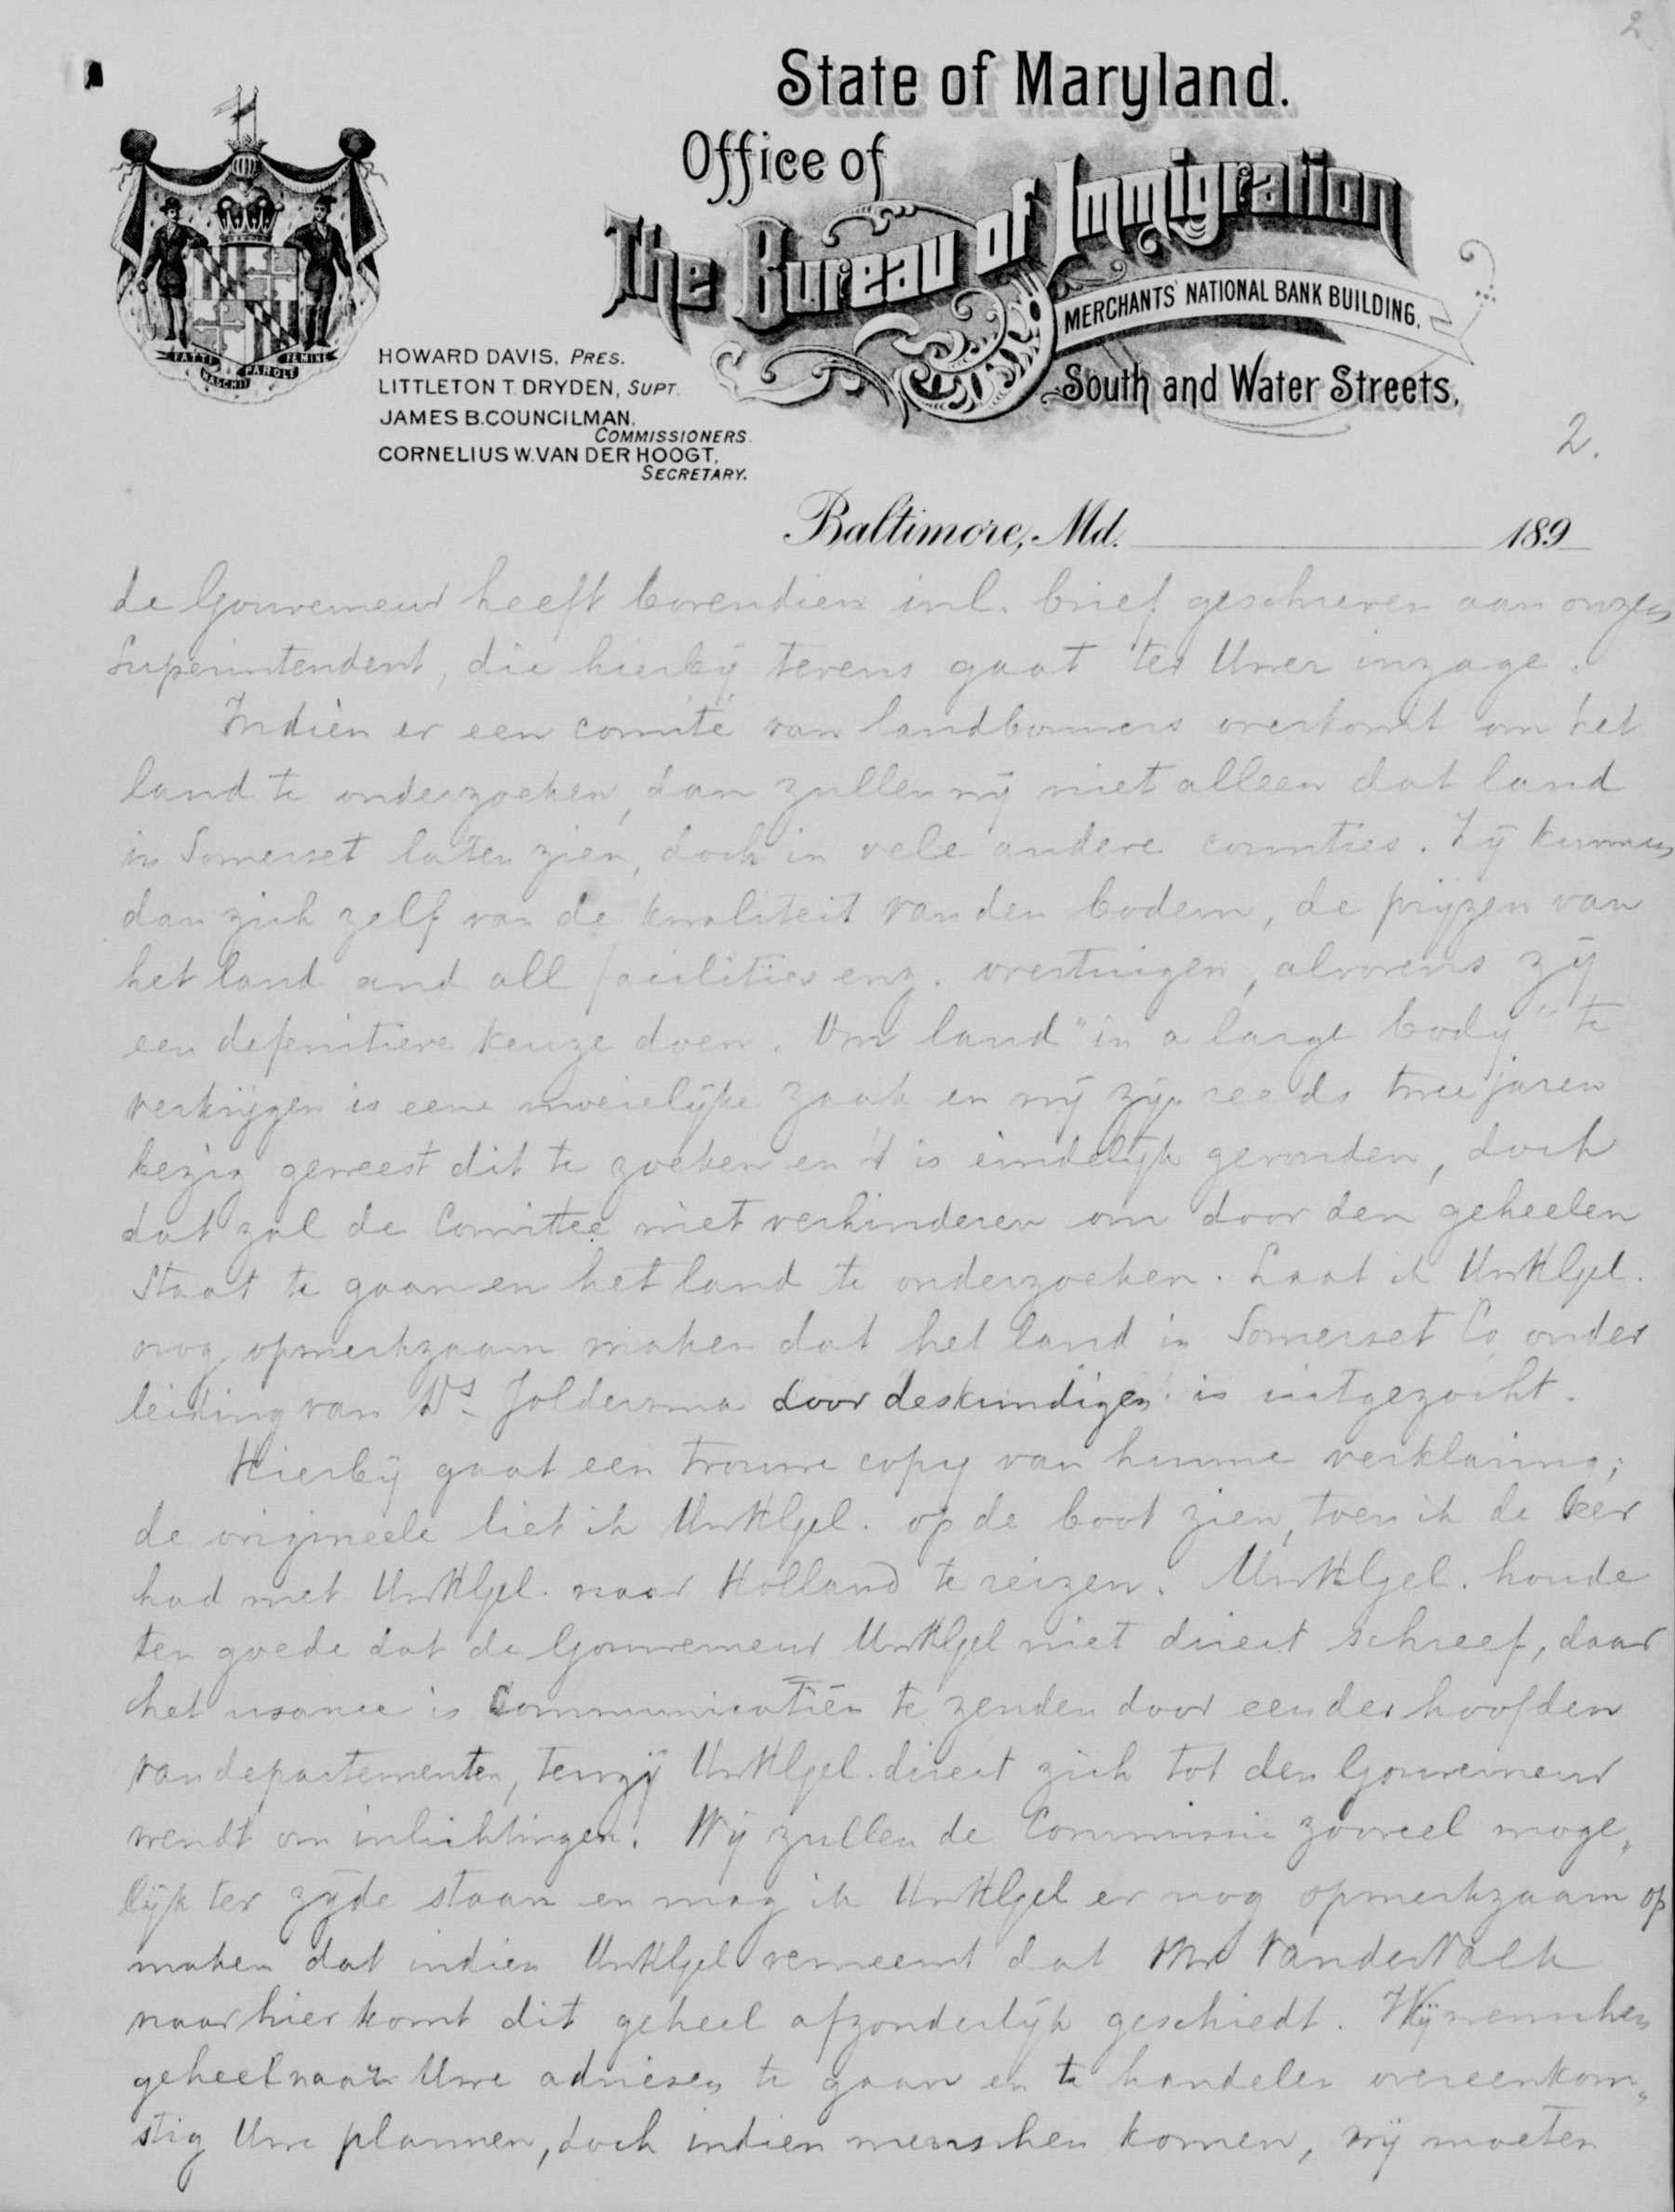 2
State of Maryland.
Office of
The Bureau of Immigration
MERCHANTS' NATIONAL BANK BUILDING,
South and Water Streets,
FATTI MASCHII PAROLE FEMINE
HOWARD DAVIS, PRES.
LITTLETON T. DRYDEN, SUPT.
JAMES B. COUNCILMAN,
COMMISSIONERS.
CORNELIUS W. VAN DER HOOGT,
SECRETARY.
2.
Baltimore, Md. 189
de Gouverneur heeft bovendien inl. brief geschreven aan onzen
Superintendent, die hierbij tevens gaat ter Uwer inzage.
Indien er een comité van landbouwers overkomt om het
land te onderzoeken, dan zullen wij niet alleen dat land
in Somerset laten zien, doch in vele andere counties. Zij kunnen
dan zich zelf van de kwaliteit van den bodem, de prijzen van
het land and all facilities enz. overtuigen, alvorens zij
een definitieve keuze doen. Om land "in a large body" te
verkrijgen is eene moeielijke zaak en wij zijn reeds twee jaren
bezig geweest dit te zoeken en 't is eindelijk gevonden, doch
dat zal de Comittee niet verhinderen om door den geheelen
Staat te gaan en het land te onderzoeken. Laat ik UwHlgel.
nog opmerkzaam maken dat het land in Somerset Co. onder
leiding van Ds Joldersma door deskundigen is uitgezocht.
Hierbij gaat een trouwe copy van hunne verklaring;
de origineele liet ik UwHlgel. op de boot zien, toen ik de eer
had met UwHlgel. naar Holland te reizen. UwHlgel. houde
ten goede dat de Gouverneur UwHlgel niet direct schreef, daar
het usance is Communicatiën te zenden door een der hoofden
van departementen, tenzij UwHlgel. direct zich tot den Gouverneur
wendt om inlichtingen. Wij zullen de Commissie zooveel moge„
lijk ter zijde staan en mag ik UwHlgel er nog opmerkzaam op
maken dat indien UwHlgel verneemt dat Mr VanderValk
naar hier komt dit geheel afzonderlijk geschiedt. Wij wenschen
geheel naar Uwe adviesen te gaan en te handelen overeenkom„
stig Uwe plannen, doch indien menschen komen, wij moeten